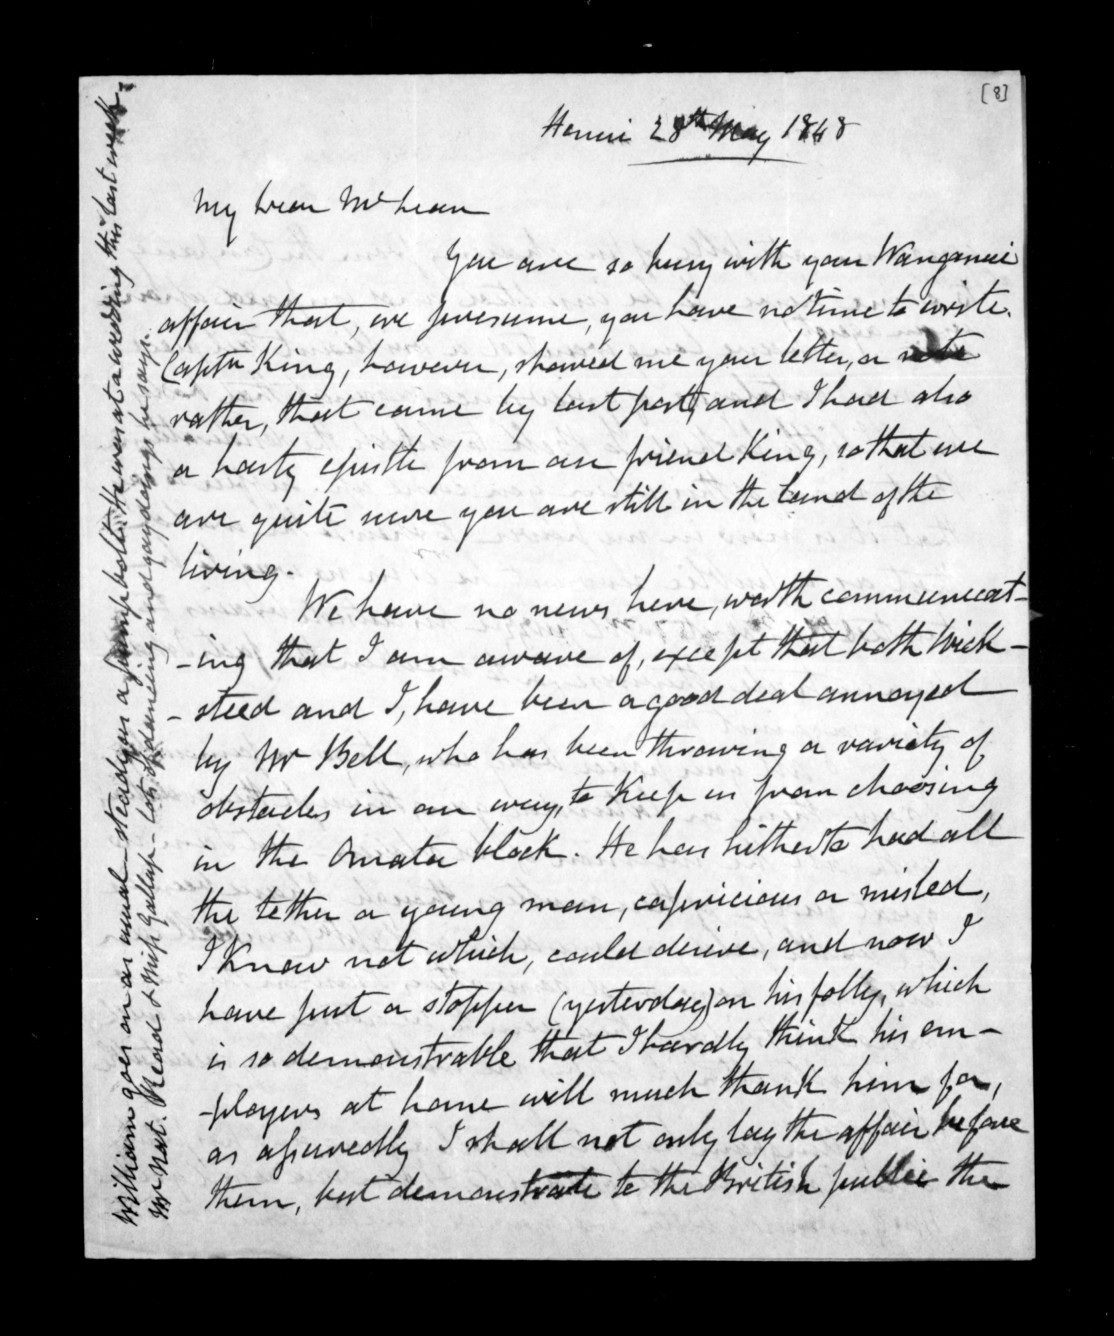 [8]
Henui 28th May 1848
My Dear McLean
You are so busy with your Wanganui
affair that, we presume, you have no time to write.
Captn King, however, showed me your letter, or note
rather, that came by last post, and I had also
a hasty epistle from our friend King, so that we
are quite sure you are still in the land of the
living.
We have no news here, worth communicat-
-ing that I am aware of, except that both Wick-
-steed and I, have been a good deal annoyed
by Mr Bell, who has been throwing a variety of
obstacles in our way, to keep us from choosing
in the Omata block. He has hitherto had all
the tether a young man, capricious or misled,
I know not which, could desire, and now I
have put a stopper (yesterday) on his folly, which
is so demonstrable that I hardly think his em-
-ployers at home will much thank him for,
as assuredly I shall not only lay the affair before
them, but demonstrate to the British public the
William goes on as usual - steady as a pump bolt. He was at a wedding this last week.
Mr Nat. Mead & Miss Gallop - Lots of dancing and gay doings he says.